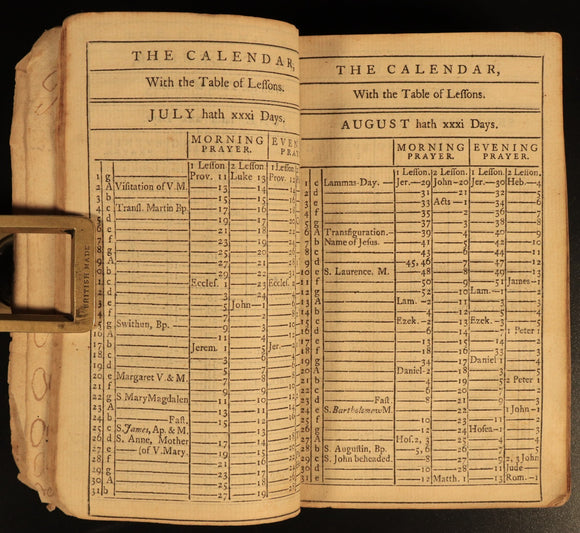 THE CALENDAR,
With the Table of Leſſons.
JULY hath xxxi Days.
MORNING PRAYER. EVEN PRAY
1 Leſſon. 2 Leſſon. 1 Leſſon
1 g Prov. 11 Luke 13 Prov. 12
2 A Viſitation of V.M. 13 14
3 b 15 15
4 c Tranſl. Martin Bp. 17 16
5 d 19 17
6 e 21 18
7 f 23 19
8 g 25 20
9 A 27 21
10 b 29 22 31
11 c Eccleſ. 1 23 Eccleſ. 2
12 d 3 24
13 e 5 John 1
14 f 7 2
15 g Swithun, Bp. 9 3
16 A 11 4
17 b Jerem. 1 5 Jer.
18 c 3 6
19 d 5 7
20 e Margaret V. & M. 7 8
21 f 9 9
22 g S Mary Magdalen 11 10
23 A 13 11
24 b Faſt. 15 12
25 c S. James, Ap. & M. 13
26 d S. Anne, Mother 17 14
27 e (of V. Mary. 19 15
28 f 21 16
29 g 23 17
30 A 25 18
31 b 27 19
THE CALENDAR,
With the Table of Leſſons.
AUGUST hath xxxi Days.
MORNING PRAYER. EVENING PRAYER.
1 Leſſon. 2 Leſſon. 1 Leſſon. 2 Leſſon.
1 c Lammas-Day. Jer. 29 John 20 Jer. 30 Heb. 4
2 d 31 21 32 5
3 e 33 Acts 1 34 6
4 f 35 2 36 7
5 g 37 3 38 8
6 A Transfiguration. 39 4 40 9
7 b Name of Jeſus. 41 5 42 10
8 c 43 6 44 11
9 d 45, 46 7 47 12
10 e S. Laurence. M. 48 8 49 13
11 f 50 9 51 James 1
12 g 52 10 Lam. 1 2
13 A Lam. 2 11 3 3
14 b 4 12 5 4
15 c Ezek. 2 13 Ezek. 3 5
16 d 6 14 7 1 Peter 1
17 e 13 15 14 2
18 f 18 16 33 3
19 g 34 17 Daniel 1 4
20 A Daniel 2 18 3 5
21 b 4 19 5 2 Peter 1
22 c 6 20 7 2
23 d Faſt. 8 21 9 3
24 e S. Bartholomew M. 22 1 John 1
25 f 10 23 11 2
26 g 12 24 Hoſea 1 3
27 A Hoſ. 2, 3 25 4 4
28 b S. Auguſtin, Bp. 5, 6 26 7 5
29 c S. John beheaded. 8 27 9 2, 3 John
30 d 10 28 11 Jude
31 e 12 Matth. 1 13 Rom. 1
BRITISH MADE